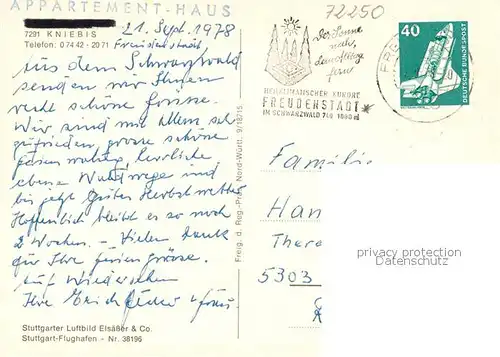 APPARTEMENT-HAUS
7291 KNIEBIS 21. Sept. 1978
Telefon: 0 74 42 - 2071 Freudenstadt
Aus dem Schwarzwald
senden wir Ihnen
recht schöne Grüsse.
Wir sind mit allem sehr
zufrieden, grosse schöne
ferienwohng, herrliche
ebene Waldwege und
bis jetzt gutes Herbstwetter
Hoffentlich bleibt es so noch
2 Wochen. – Vielen Dank
für Ihre feriengrüsse.
Auf Wiedersehen
Ihre Erich u. frau.
Stuttgarter Luftbild Elsäßer & Co.
Stuttgart-Flughafen – Nr. 38196
Freig. d. Reg.-Präs. Nord-Württ. 9/18/15
72250
Der Sonne
nah,
dem Alltag
fern!
HEILKLIMATISCHER KURORT
FREUDENSTADT
IM SCHWARZWALD 740-1000 m
40
DEUTSCHE BUNDESPOST
Familie
Han
Thera
5303
privacy protection
Datenschutz